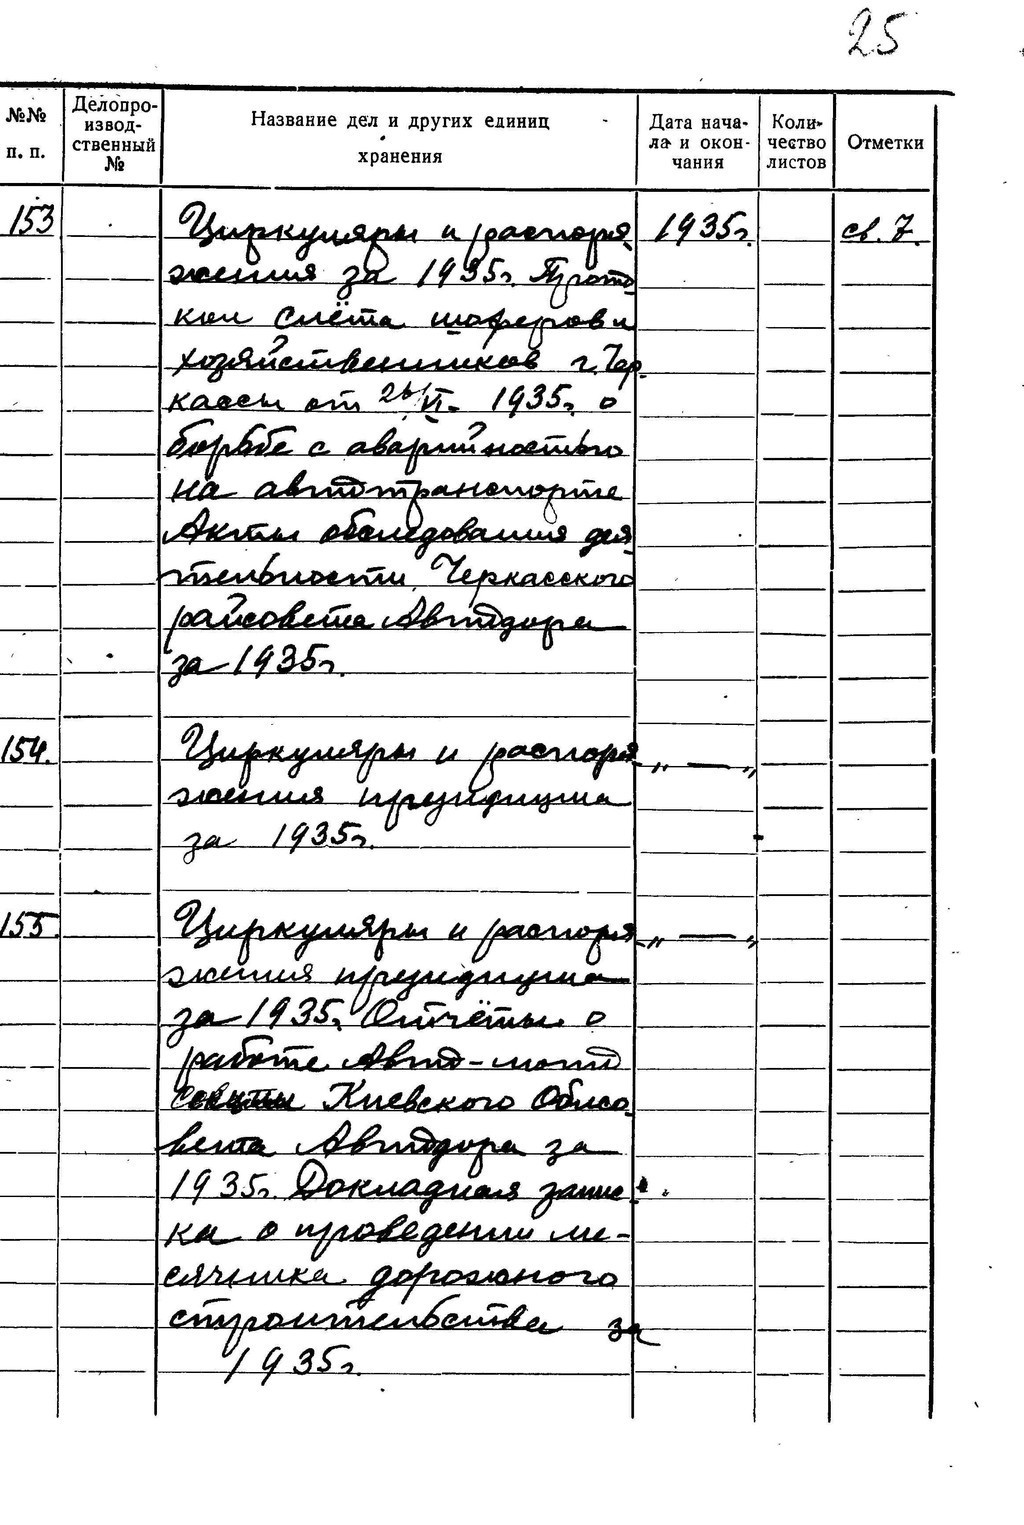 25
№№ п. п.
Делопро-
извод-
ственный
№
Название дел и других единиц
хранения
Дата нача-
ла и окон-
чания
Коли-
чество
листов
Отметки
153 Циркуляры и распоря- 1935г. св. 7.
жения за 1935г. Прото-
кол слёта шоферов и
хозяйственников г. Чер-
кассы от 26/VI- 1935г. о
борьбе с аварийностью
на автотранспорте
Акты обследования дея-
тельности Черкасского
райсовета Автодора
за 1935г.
154. Циркуляры и распоря- „ — „
жения президиума
за 1935г.
155. Циркуляры и распоря- „ — „
жения президиума
за 1935г. Отчёты о
работе Авто-мото
секции Киевского Облсо-
вета Автодора за
1935г. Докладная запис-
ка о проведении ме-
сячника дорожного
строительства за
1935г.